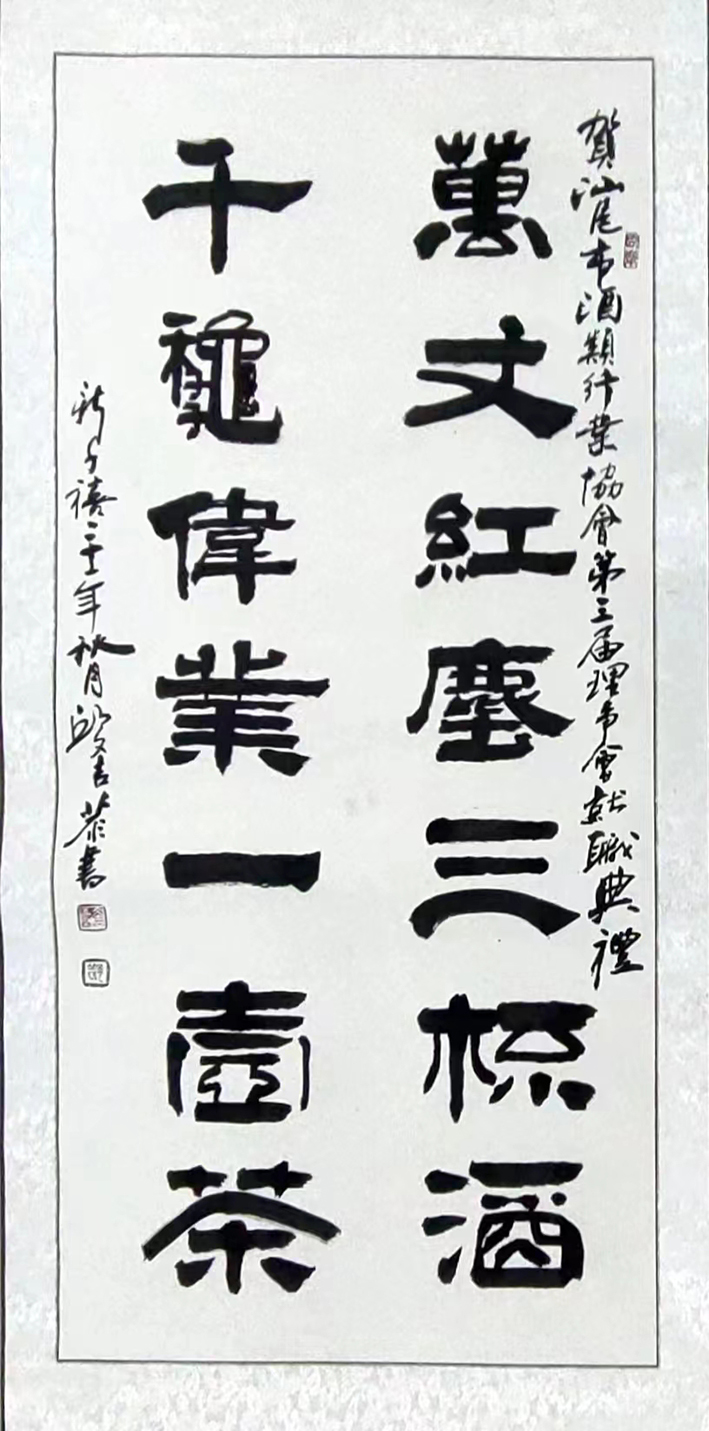 賀汕尾市酒類行業協會第三届理事會就職典禮
萬丈紅塵三杯酒
千龝偉業一壺茶
新千禧二十一年秋月 文吉恭書